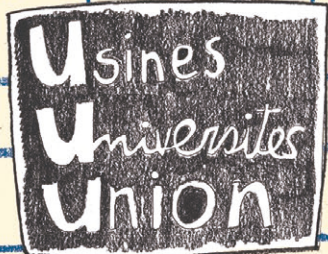 Usines
Universites
Union